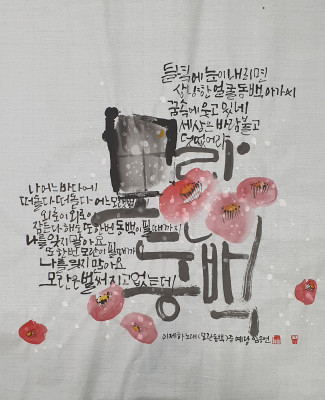 들녘에 눈이 내리면
상냥한 얼굴 동백아가씨
꿈속에 웃고 있네
세상은 바람불고
덧없어라
모란
동백
나 어느 바다에
떠돌다 떠돌다 어느
외로이 외로이
잠든다 해도 또 한번 동백이 필때까지
나를 잊지 말아요
또 한번 모란이 필때까지
나를 잊지 말아요
모란은 벌써 지고 없는데
이제하 노래 <모란동백> 중 예당